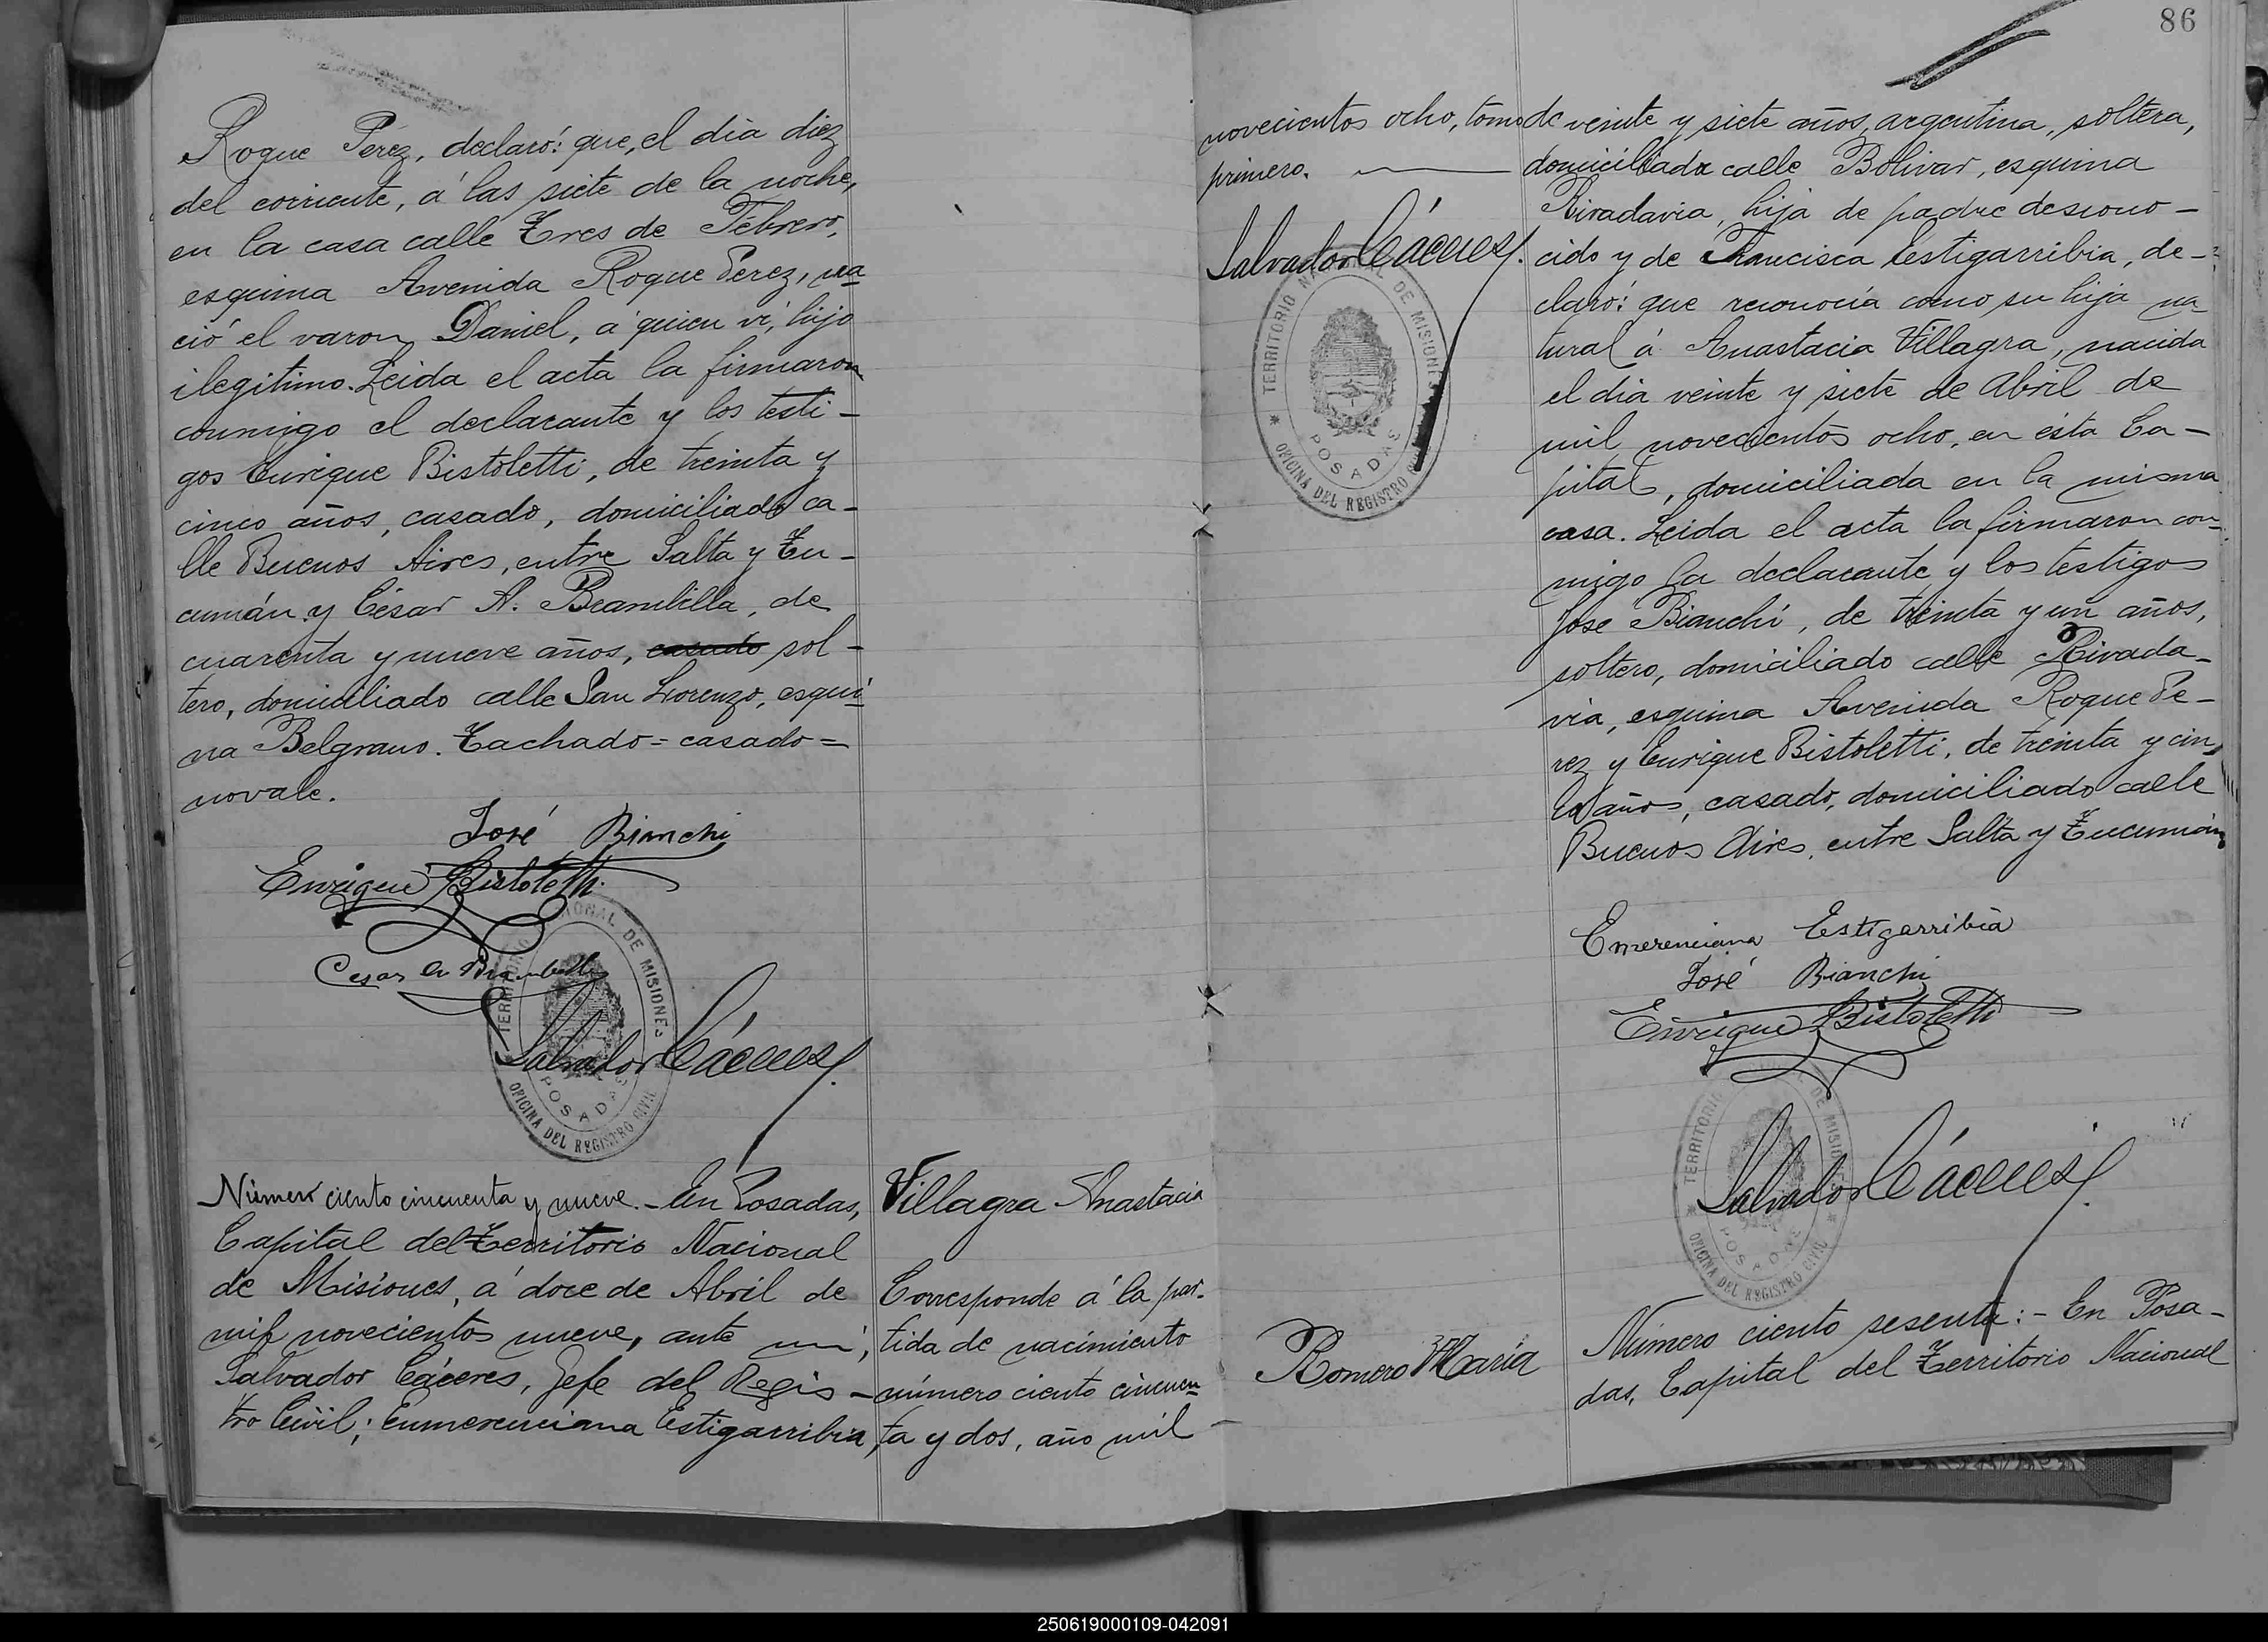 Roque Pérez, declaró: que, el dia diez
del corriente, á las siete de la noche,
en la casa calle Tres de Febrero,
esquina Avenida Roque Perez, na
ció el varon Daniel, á quien ví, hijo
ilegitimo. Leida el acta la firmaron
conmigo el declarante y los testi-
gos Enrique Bistoletti, de treinta y
cinco años, casado, domiciliado ca-
lle Buenos Aires, entre Salta y Tu-
cumán y César A. Brambilla, de
cuarenta y nueve años, casado sol-
tero, domiciliado calle San Lorenzo, esqui-
na Belgrano. Tachado = casado =
no vale.
José Bianchi
Enrique Bistoletti
Cesar A Brambilla
Salvador Cáceres
TERRITORIO NACIONAL DE MISIONES
POSADAS
OFICINA DEL REGISTRO CIVIL
Número ciento cincuenta y nueve. - En Posadas,
Capital del Territorio Nacional
de Misiones, á doce de Abril de
mil novecientos nueve, ante mi,
Salvador Cáceres, Jefe del Regis-
tro Civil; Enmerenciana Estigarribia,
Villagra Anastacia
Corresponde á la par-
tida de nacimiento
número ciento cincuen
ta y dos, año mil
86
novecientos ocho, tomo
primero.
Salvador Cáceres
TERRITORIO NACIONAL DE MISIONES
POSADAS
OFICINA DEL REGISTRO CIVIL
de veinte y siete años, argentina, soltera,
domiciliada calle Bolivar, esquina
Rivadavia, hija de padre descono-
cido y de Francisca Estigarribia, de-
claró: que reconocía como su hija na-
tural á Anastacia Villagra, nacida
el dia veinte y siete de Abril de
mil novecientos ocho, en ésta Ca-
pital, domiciliada en la misma
casa. Leida el acta la firmaron con-
migo la declarante y los testigos
José Bianchi, de treinta y un años,
soltero, domiciliado calle Rivada-
via, esquina Avenida Roque Pe-
rez y Enrique Bistoletti, de treinta y cin
co años, casado, domiciliado calle
Buenos Aires, entre Salta y Tucumán
Emerenciana Estigarribia
José Bianchi
Enrique Bistoletti
Salvador Cáceres
TERRITORIO NACIONAL DE MISIONES
POSADAS
OFICINA DEL REGISTRO CIVIL
Romero María
Número ciento sesenta: - En Posa-
das, Capital del Territorio Nacional
250619000109-042091